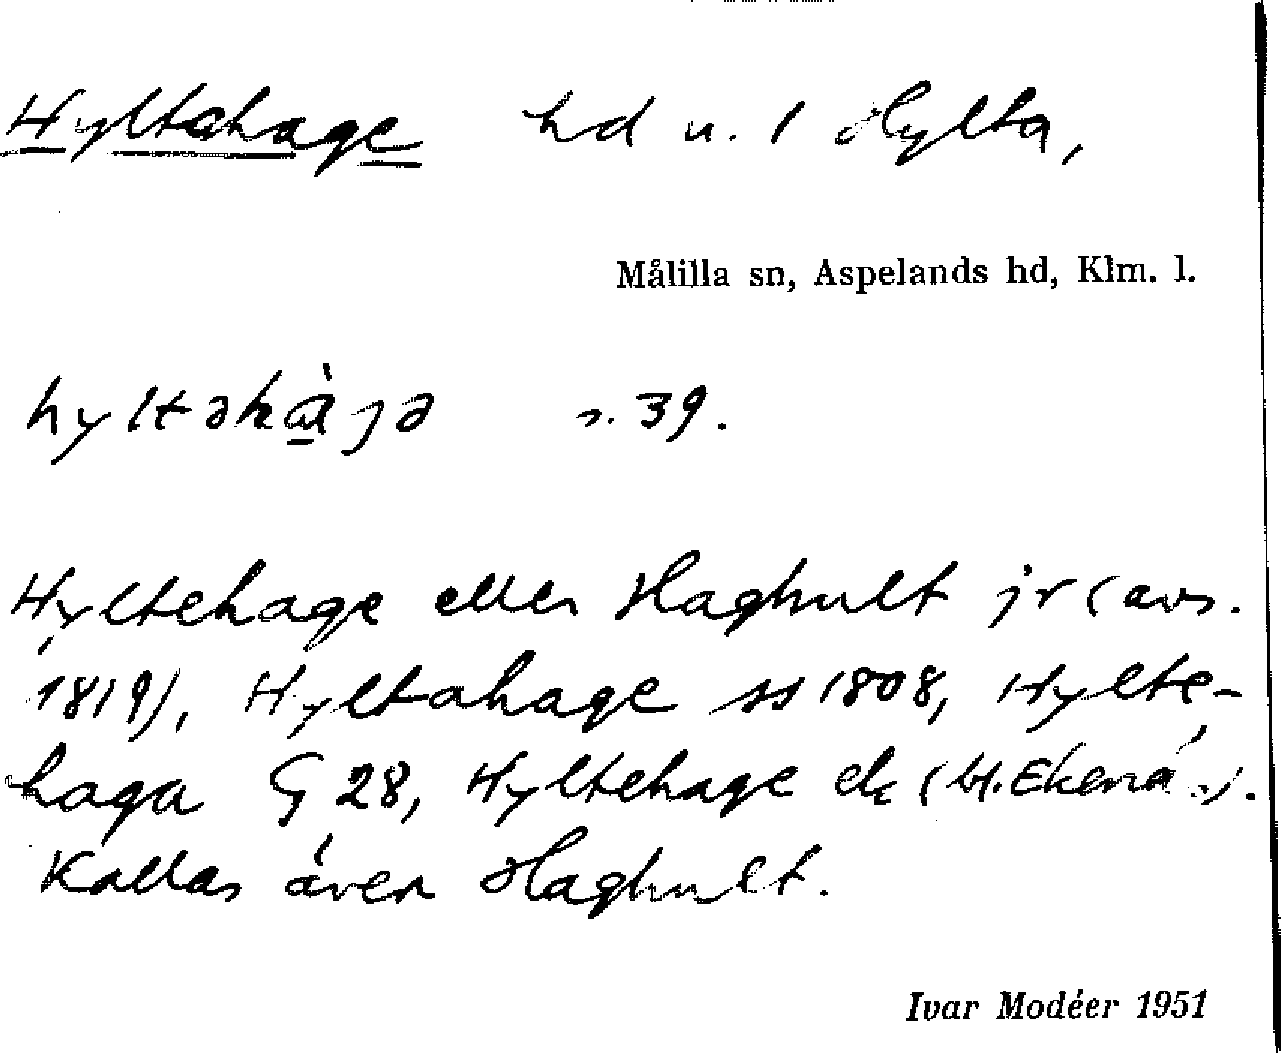 Hyltehage hd u. 1 Hylta,
Målilla sn, Aspelands hd, Klm. l.
hyltəhàjə s. 39.
Hyltehage eller Haghult jr (avs.
1819), Hyltahage ss 1808, Hylte-
haga G 28, Hyltehage ek (bl. Ekenä..).
Kallas även Haghult.
Ivar Modéer 1951